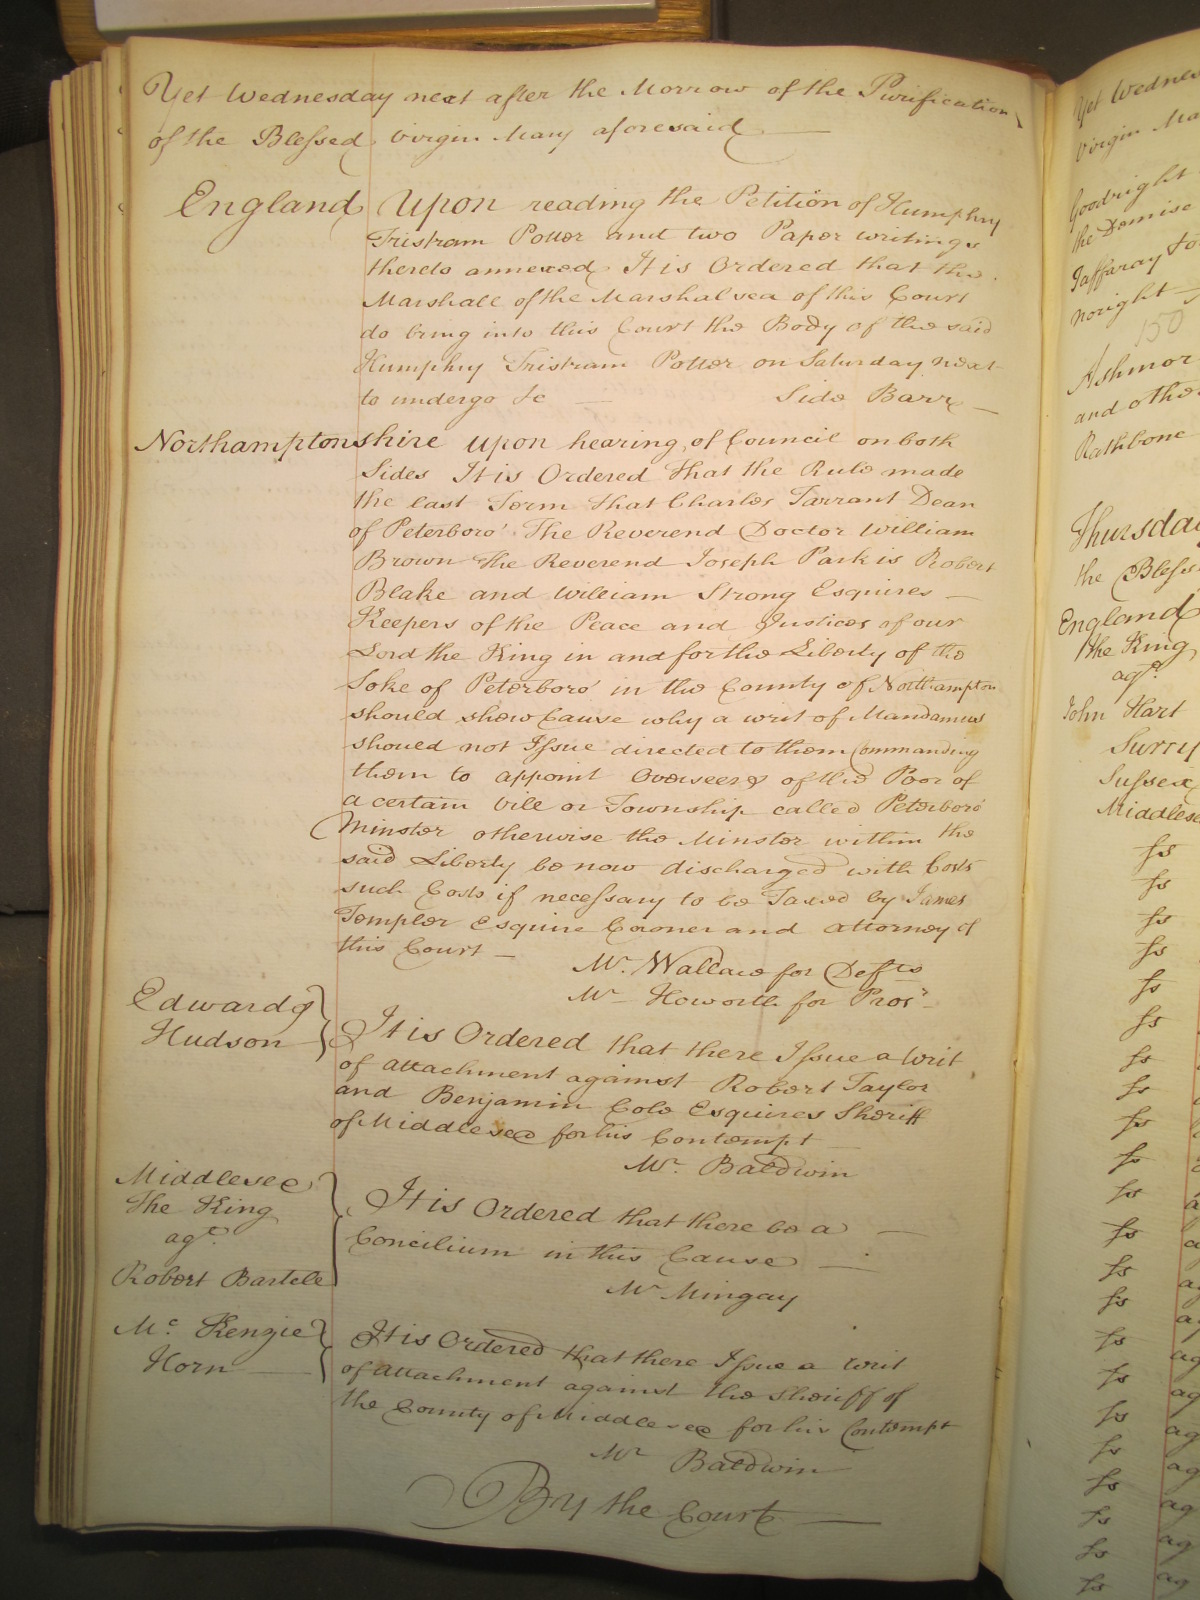 Yet Wednesday next after the Morrow of the Purification
of the Blessed Virgin Mary aforesaid
England Upon reading the Petition of Humphry
Tristram Potter and two Paper writings
thereto annexed It is Ordered that the
Marshall of the Marshalsea of this Court
do bring into this Court the Body of the said
Humphry Tristram Potter on Saturday next
to undergo &c — Side Barr —
Northamptonshire Upon hearing of Council on both
Sides It is Ordered that the Rule made
the last Term that Charles Tarrant Dean
of Peterboro' The Reverend Doctor William
Brown the Reverend Joseph Parkis Robert
Blake and William Strong Esquires —
Keepers of the Peace and Justices of our
Lord the King in and for the Liberty of the
Soke of Peterboro' in the County of Northampton
should shew Cause why a writ of Mandamus
should not Issue directed to them Commanding
them to appoint Overseers of the Poor of
a certain Vill or Township called Peterboro'
Minster otherwise the Minster within the
said Liberty be now discharged with Costs
such Costs if necessary to be Taxed by James
Templer Esquire Coroner and Attorney of
this Court —
Mr. Wallace for Defts
Mr Howorth for Pros.r
Edwards
Hudson
It is Ordered that there Issue a Writ
of attachment against Robert Taylor
and Benjamin Cole Esquires Sheriff
of Middlesex for his Contempt
Mr. Baldwin
Middlesex
the King
agt.
Robert Bartell
It is Ordered that there be a —
Concilium in this Cause —
Mr Mingay
Mc. Kenzie
Horn —
It is Ordered that there Issue a Writ
of attachment against the Sheriff of
the County of Middlesex for his Contempt
Mr Baldwin
By the Court —
Yet Wednes
Virgin Ma
Goodright
the Demise
Jaffaray
noright
150
Ashmor
and othe
Rathbone
Thursda
the Bless
England
the King
agt.
John Hart
Surry
Sussex
Middlese